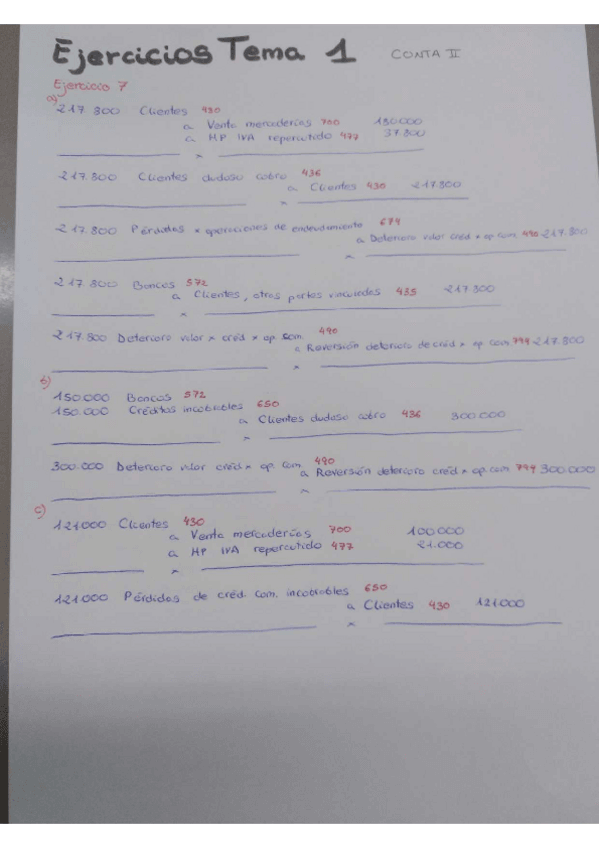 Ejercicios Tema 1 CONTA II
Ejercicio 7
a)
217.800 Clientes 430
a Venta mercaderías 700 180.000
a HP IVA repercutido 477 37.800
217.800 Clientes dudoso cobro 436
a Clientes 430 217.800
217.800 Pérdidas x operaciones de endeudamiento 694
a Deterioro valor créd x op com. 490 217.800
217.800 Bancos 572
a Clientes, otras partes vinculadas 435 217.800
217.800 Deterioro valor x créd x op. com. 490
a Reversión deterioro de créd x op. com 794 217.800
b)
150.000 Bancos 572
150.000 Créditos incobrables 650
a Clientes dudoso cobro 436 300.000
300.000 Deterioro valor créd x op. com. 490
a Reversión deterioro créd x op. com 794 300.000
c)
121.000 Clientes 430
a Venta mercaderías 700 100.000
a HP IVA repercutido 477 21.000
121.000 Pérdidas de créd. com. incobrables 650
a Clientes 430 121.000